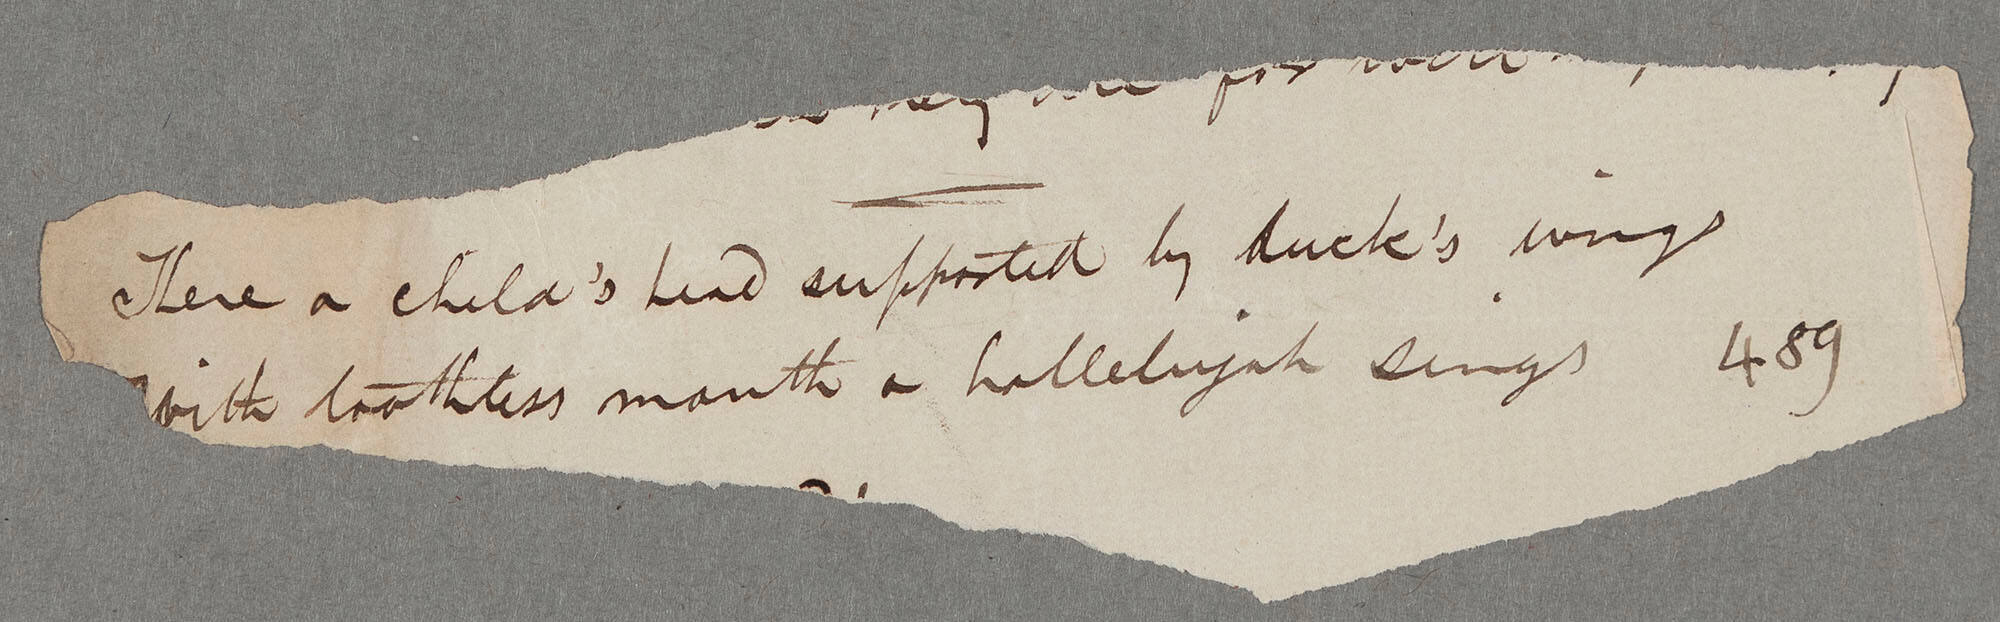 There a child's head supported by duck's wings
With toothless mouth a hallelujah sings 489